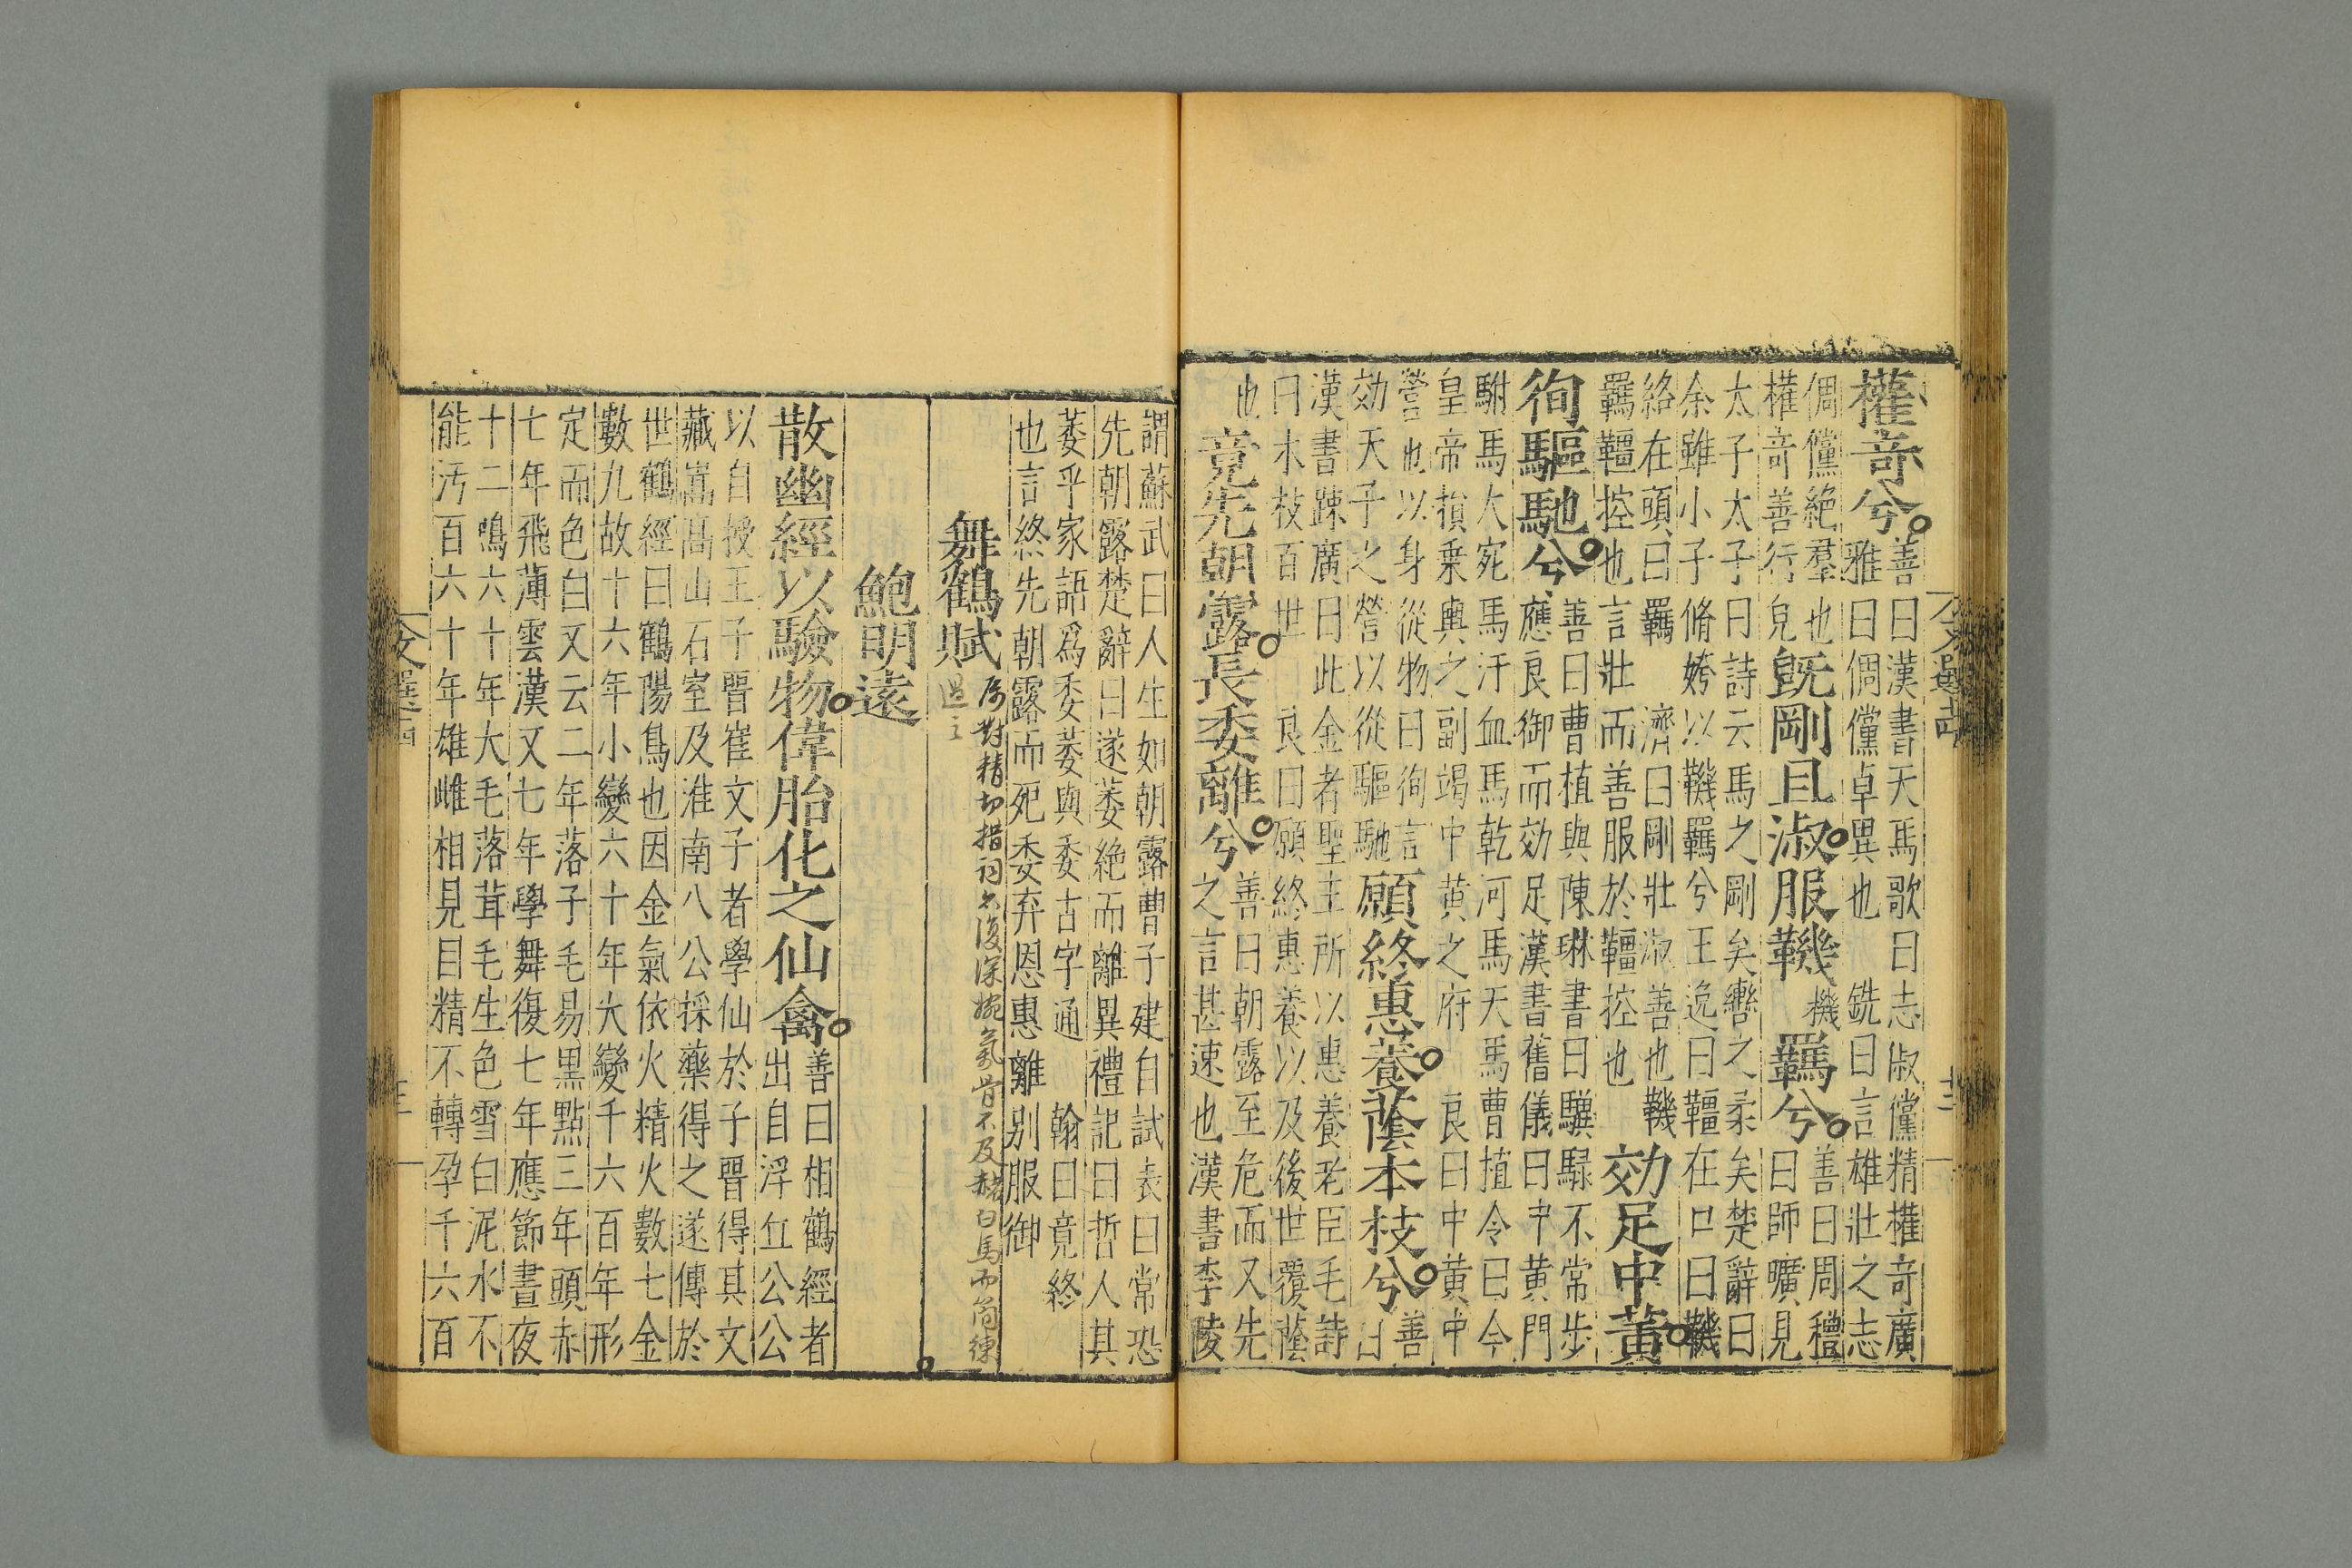 權奇兮善曰漢書天馬歌曰志俶儻精權奇廣
雅曰倜儻卓異也　銑曰言雄壯之志
倜儻絕羣也
權奇善行皃旣剛且淑服鞿機羈兮善曰周禮
曰師曠見
太子太子曰詩云馬之剛矣轡之柔矣楚辭曰
余雖小子脩姱以鞿羈兮王逸曰韁在口曰鞿
絡在頭曰羈　濟曰剛壯淑善也鞿
羈韁控也言壯而善服於韁控也効足中黃
徇驅馳兮善曰曹植與陳琳書曰驥騄不常步
應良御而効足漢書舊儀曰中黃門
駙馬大宛馬汗血馬乾河馬天馬曹植令曰今
皇帝損乗輿之副竭中黃之府　良曰中黃中
營也以身從物曰徇言
効天子之營以從驅馳願終惠養蔭本枝兮善
曰
漢書踈廣曰此金者聖主所以惠養老臣毛詩
曰木枝百世　良曰願終惠養以及後世覆蔭
也
竟先朝露長委離兮善曰朝露至危而又先
之言甚速也漢書李陵
謂蘇武曰人生如朝露曹子建自試表曰常恐
先朝露楚辭曰遂萎絕而離異禮記曰哲人其
萎乎家語爲委萎與委古字通　翰曰竟終
也言終先朝露而死委弃恩惠離别服御
舞鶴賦
鮑明遠
散幽經以驗物偉胎化之仙禽善曰相鶴經者
出自浮丘公公
以自授王子晉崔文子者學仙於子晉得其文
藏嵩髙山石室及淮南八公採藥得之遂傳於
世鶴經曰鶴陽鳥也因金氣依火精火數七金
數九故十六年小變六十年大變千六百年形
定而色白又云二年落子毛易黒點三年頭赤
七年飛薄雲漢又七年學舞復七年應節晝夜
十二鳴六十年大毛落茸毛生色雪白泥水不
能汚百六十年雄雌相見目精不轉孕千六百